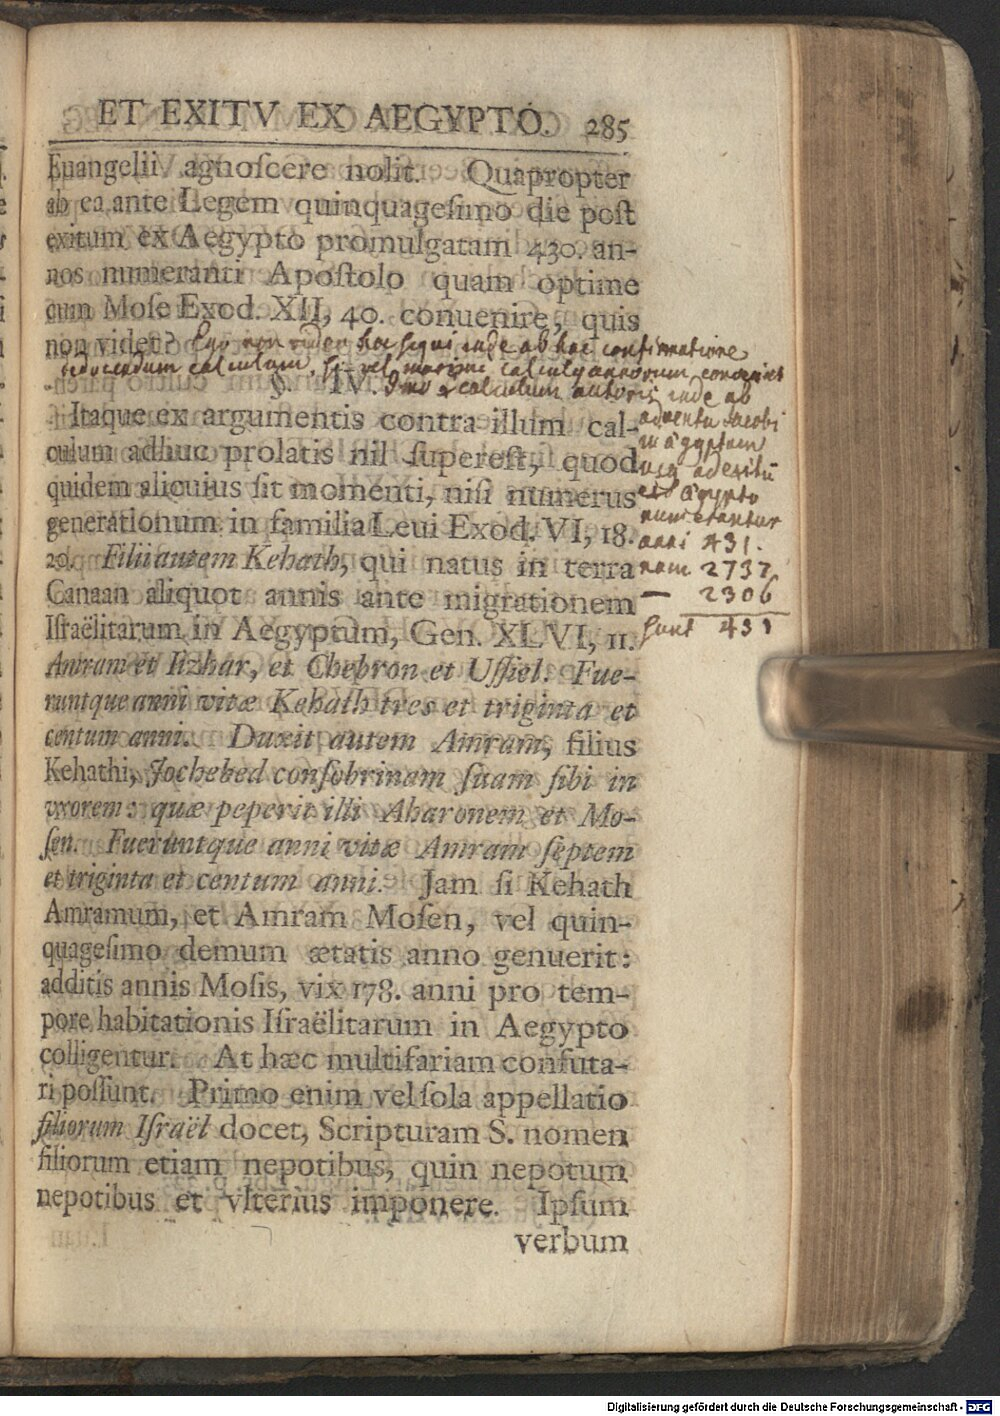 ET EXITV EX AEGYPTO. 285
Euangelii agnoſcere nolit. Quapropter
ab ea ante Legem quinquageſimo die poſt
exitum ex Aegypto promulgatam 430. an-
nos numeranti Apoſtolo quam optime
cum Moſe Exod. XII, 40. conuenire, quis
non videt? Ego non video hoc sequi inde ab hac confirmatione
deducendum calculum, si vel maxime calculus annorum
§. IV. calculum autoris inde ab
adventu Jacobi
in Ægyptum
usq ad exitũ
ex Ægypto
numerantur
anni 431.
nam 2737
— 2306
sunt 431
Itaque ex argumentis contra illum cal-
culum adhuc prolatis nil ſupereſt, quod
quidem alicuius ſit momenti, niſi numerus
generationum in familia Leui Exod. VI, 18.
20. Filii autem Kehath, qui natus in terra
Canaan aliquot annis ante migrationem
Iſraëlitarum in Aegyptum, Gen. XLVI, 11.
Amram et Iizhar, et Chebron et Uſſiel. Fue-
runtque anni vitæ Kehath tres et triginta et
centum anni. Duxit autem Amram, filius
Kehathi, Jochebed conſobrinam ſuam ſibi in
vxorem: quæ peperit illi Aharonem et Mo-
ſen. Fueruntque anni vitæ Amram ſeptem
et triginta et centum anni. Jam ſi Kehath
Amramum, et Amram Moſen, vel quin-
quageſimo demum ætatis anno genuerit:
additis annis Moſis, vix 178. anni pro tem-
pore habitationis Iſraëlitarum in Aegypto
colligentur. At hæc multifariam confuta-
ri poſſunt. Primo enim vel ſola appellatio
filiorum Iſraël docet, Scripturam S. nomen
filiorum etiam nepotibus, quin nepotum
nepotibus et vlterius imponere. Ipſum
verbum
Digitalisierung gefördert durch die Deutsche Forschungsgemeinschaft - DFG